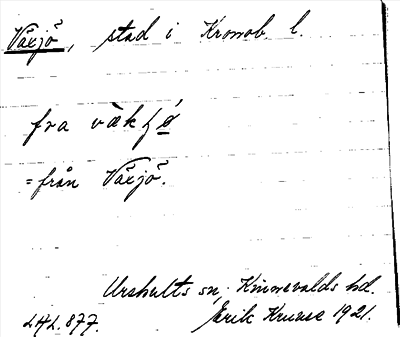 Växjö, stad i Kronob. l.
fra
= från Växjö.
Urshults sn, Kinnevalds hd.
Erik Kruuse 1921.